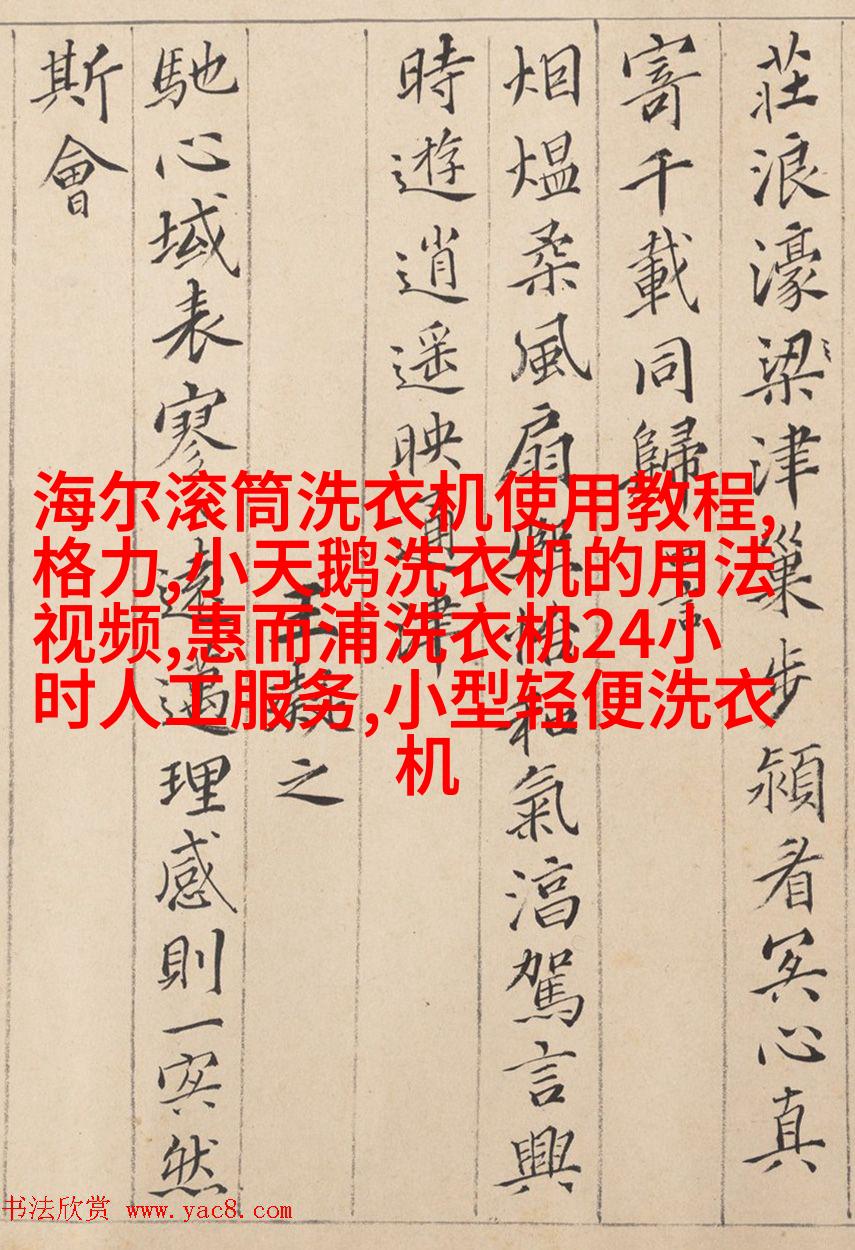 莊浪濠梁津巢步潁看冥心真
寄千載同歸
烟煴柔風扇
和氣淯駕言興
時遊逍遥映通津
王
之
馳心域表寥遠邁理感則一冥然
斯會
海尔滚筒洗衣机使用教程,
格力,小天鹅洗衣机的用法
视频,惠而浦洗衣机24小
时人工服务,小型轻便洗衣
机
书法欣赏 www.yac8.com